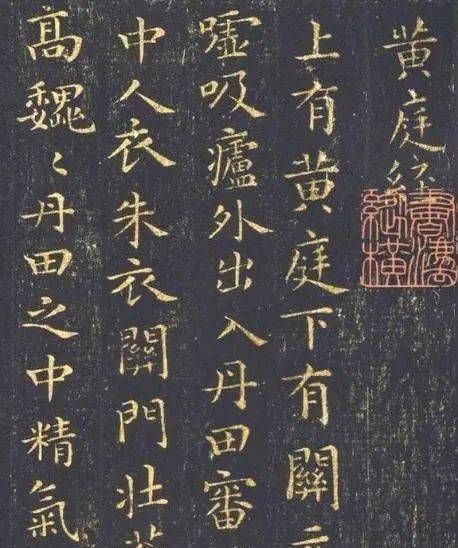 黄庭經
上有黄庭下有關元
噓吸廬外出入丹田審
中人衣朱衣關門壯
高巍〻丹田之中精氣